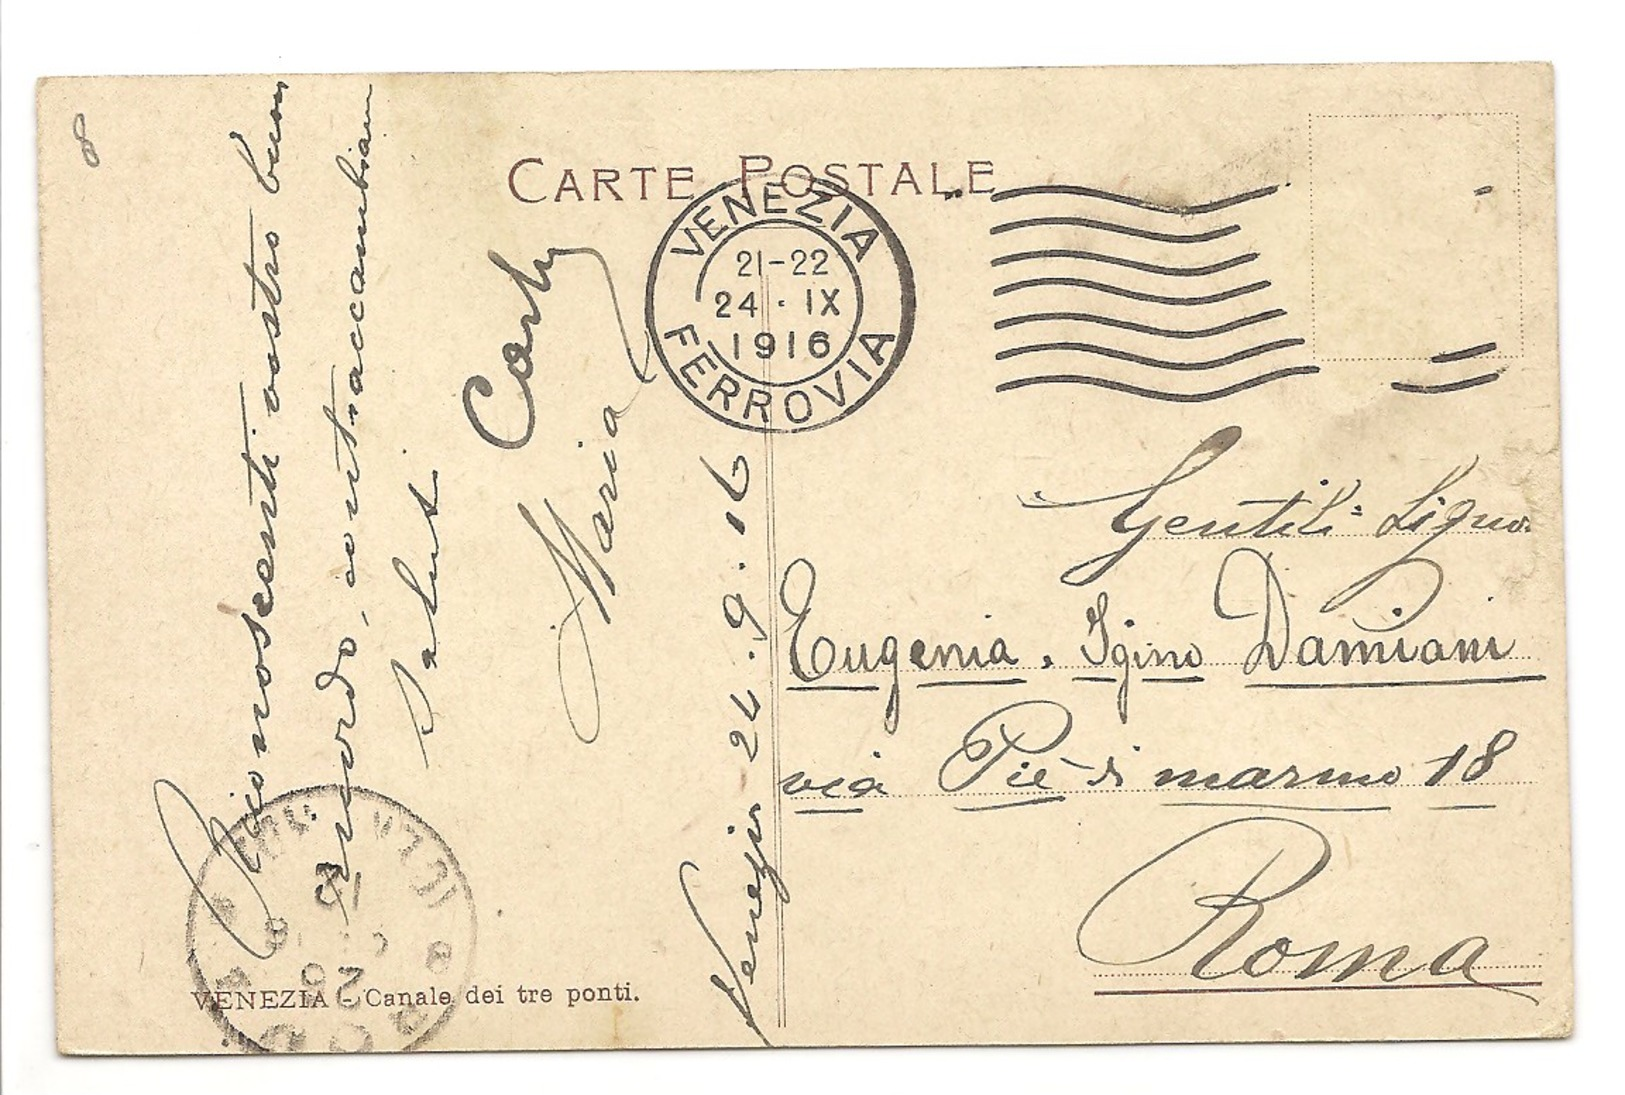 8
CARTE POSTALE
VENEZIA
21-22
24 · IX
1916
FERROVIA
Riconoscenti vostro buon
ricordo, contraccambiam
Saluti
Carlo
Maria
Venezia 24.9.16
Gentili: Signori
Eugenia. Igino Damiani
via Piè di marmo 18
Roma
26
VENEZIA - Canale dei tre ponti.